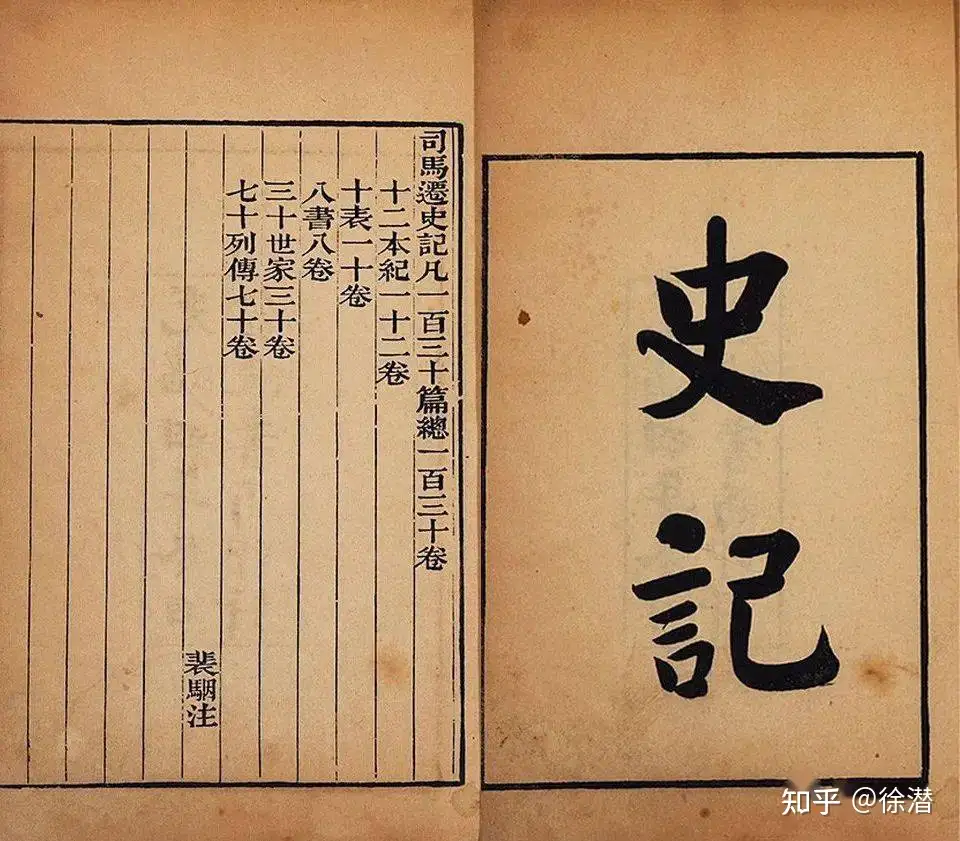 史記
司馬遷史記凡一百三十篇總一百三十卷
十二本紀一十二卷
十表一十卷
八書八卷
三十世家三十卷
七十列傳七十卷
裴駰注
知乎 @徐潜